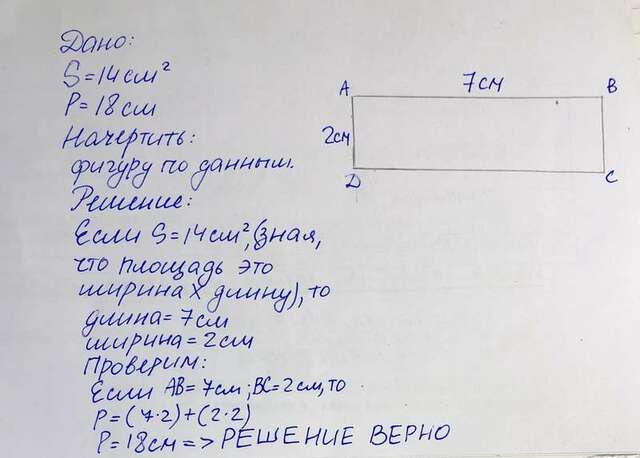 Дано:
S=14см²
P=18см
Начертить:
фигуру по данным.
Решение:
Если S=14см²,(зная,
что площадь это
ширина X длину), то
длина=7см
ширина=2см
Проверим:
Если AB=7см;BC=2см,то
P=(7·2)+(2·2)
P=18см=>РЕШЕНИЕ ВЕРНО
A 7см B
2см
D C